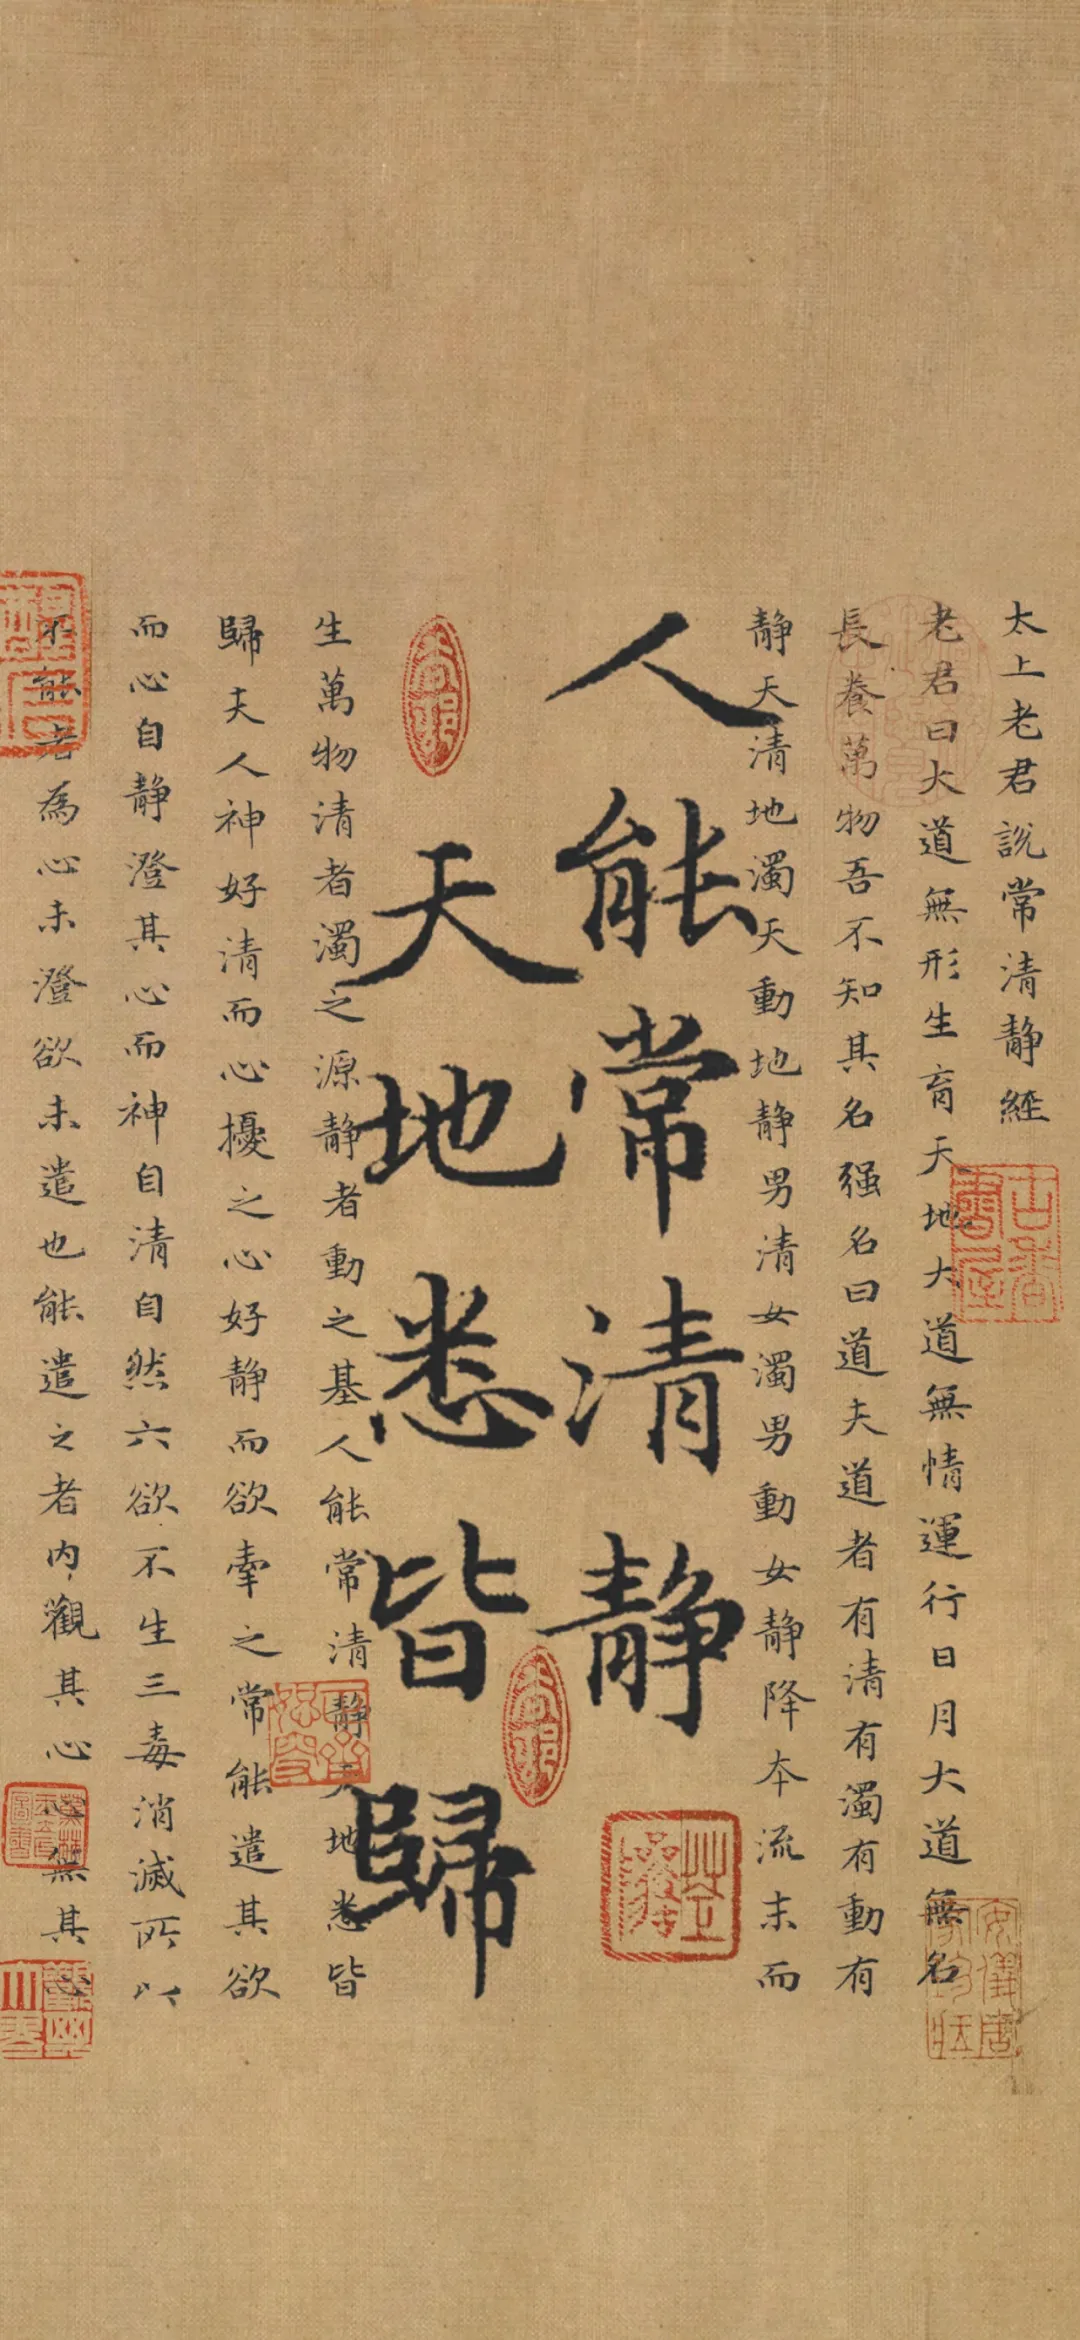 太上老君說常清静經
老君曰大道無形生育天地大道無情運行日月大道無名
長養萬物吾不知其名强名曰道夫道者有清有濁有動有
静天清地濁天動地静男清女濁男動女静降夲流末而
人能常清静
天地悉皆歸
生萬物清者濁之源静者動之基人能常清静天地悉皆
歸夫人神好清而心擾之心好静而欲牽之常能遣其欲
而心自静澄其心而神自清自然六欲不生三毒消滅所以
不能者為心未澄欲未遣也能遣之者内觀其心心無其心